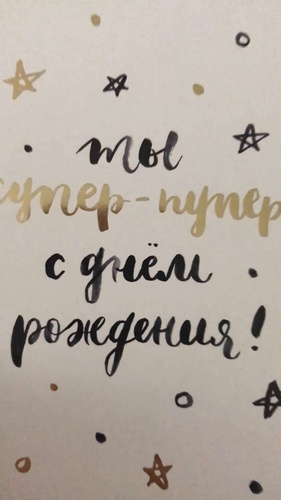 ты
супер-пупер
с днём
рождения!